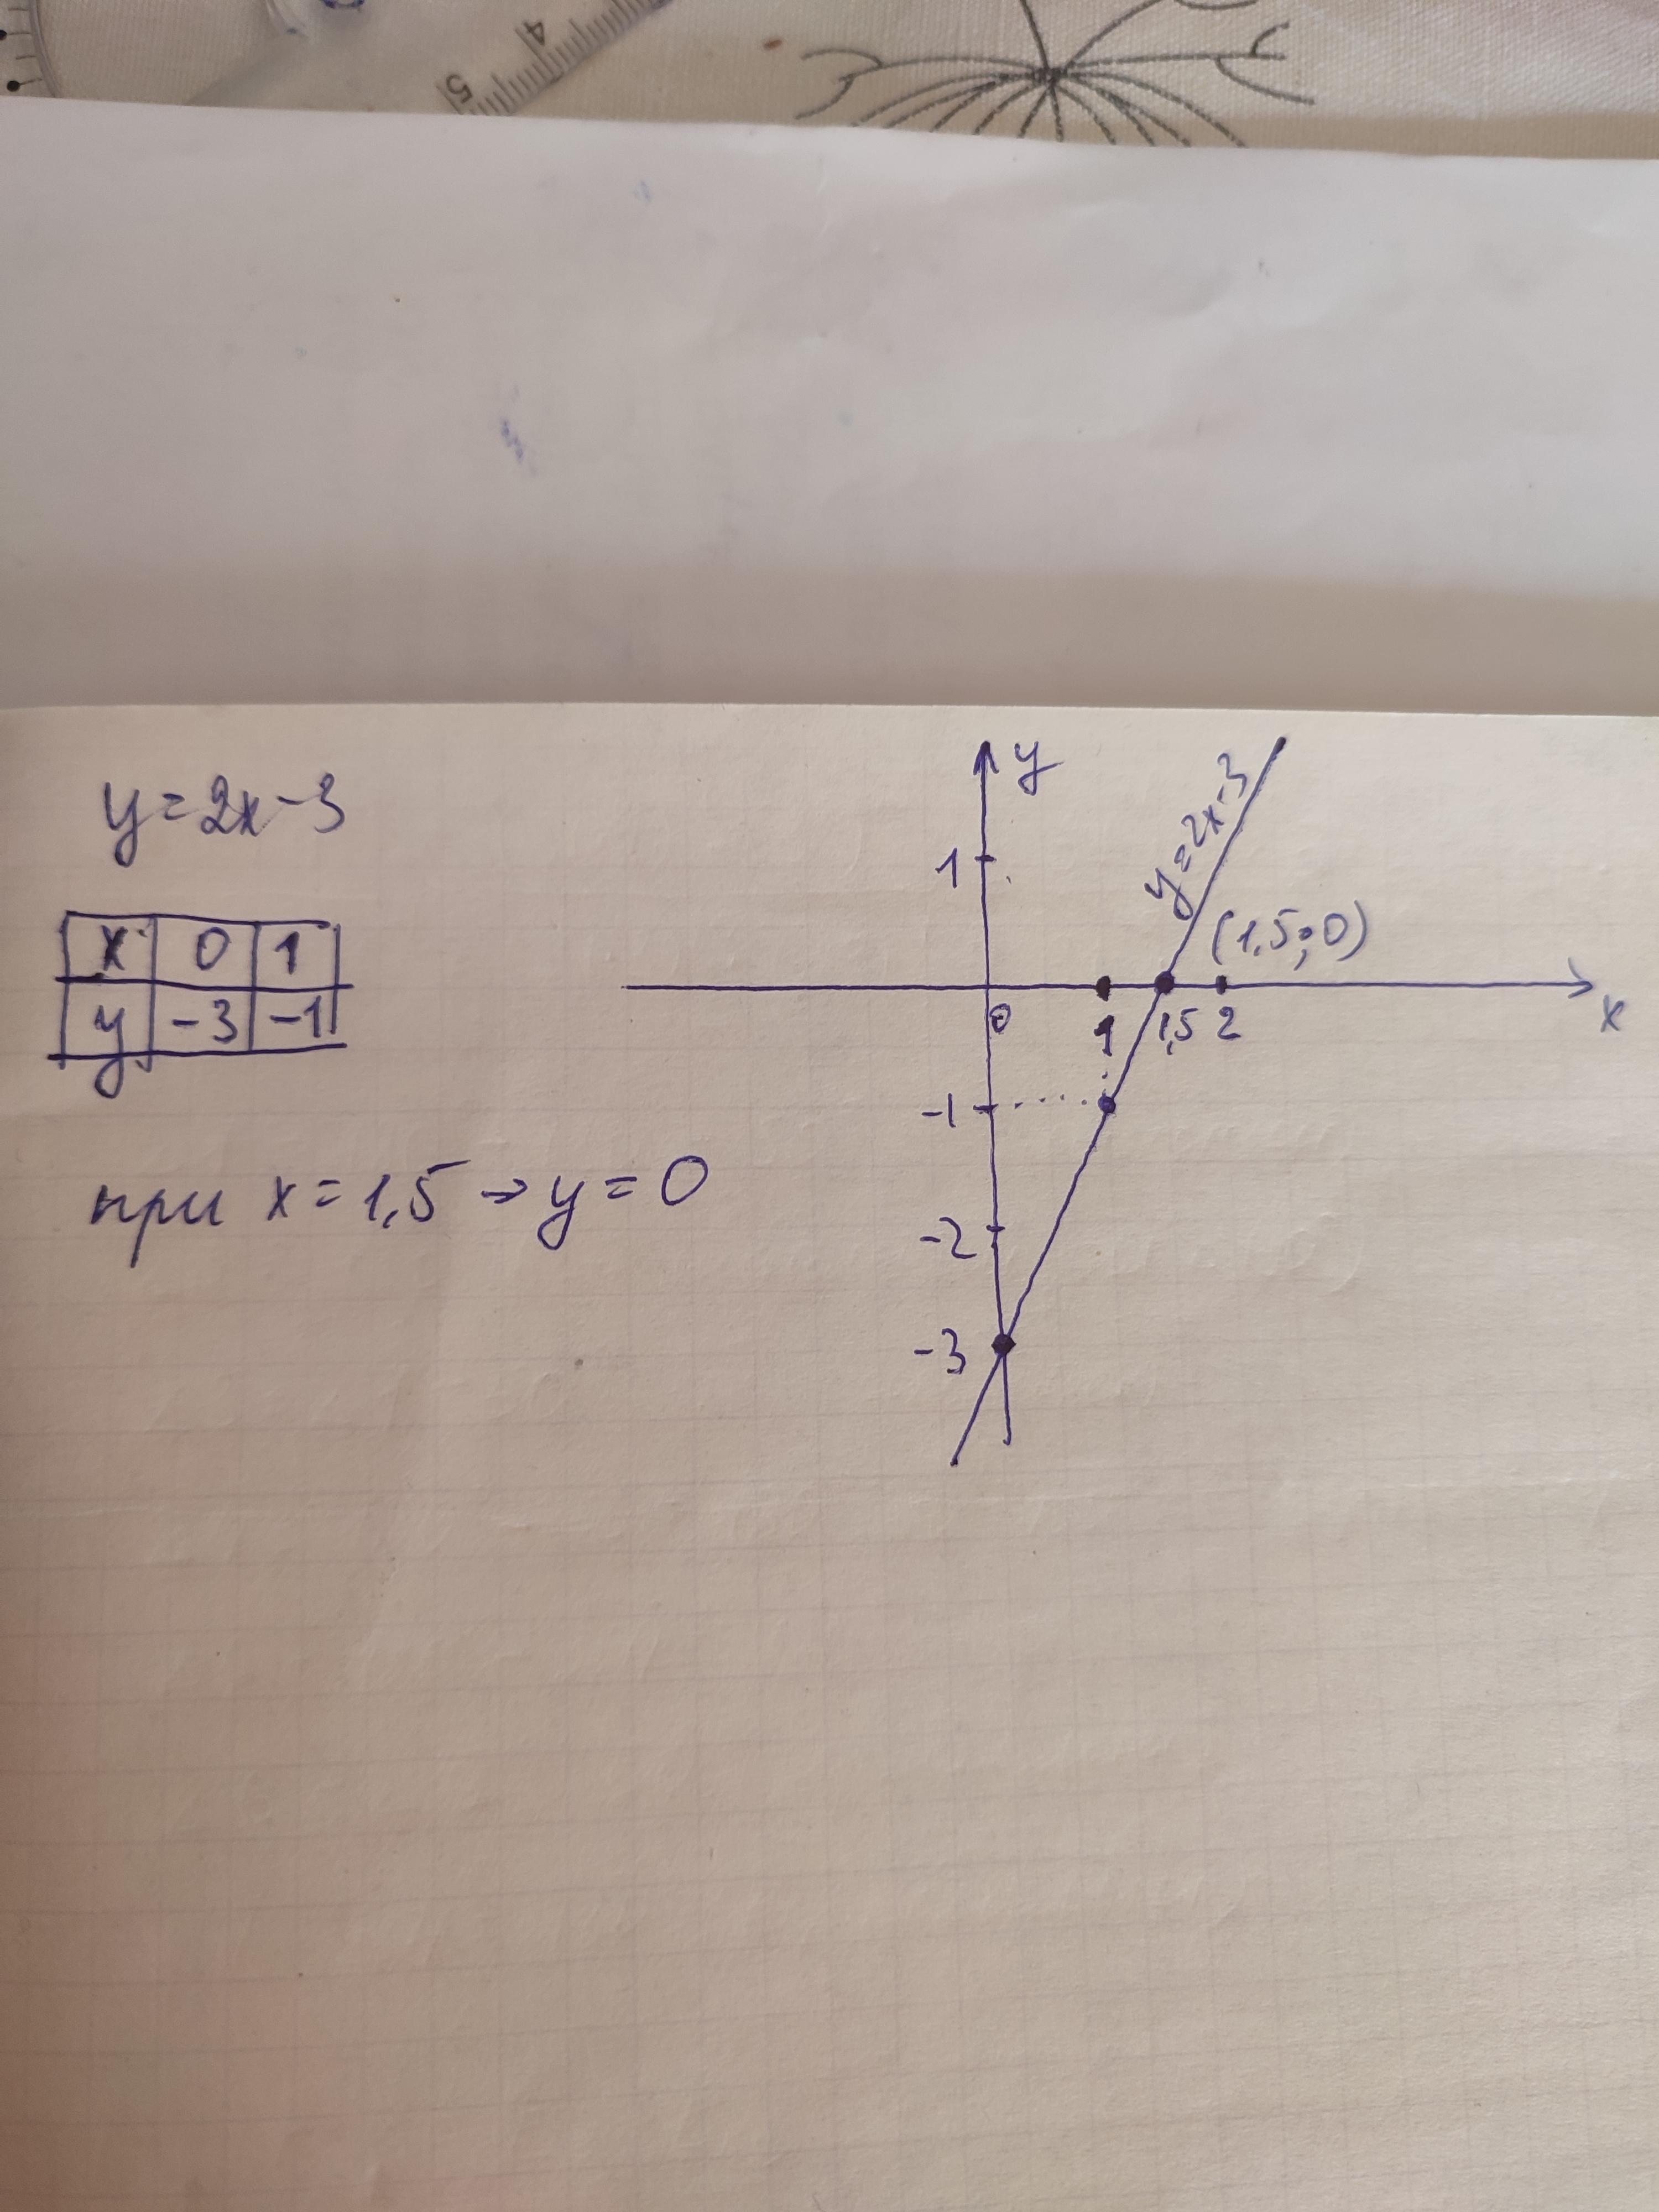 4
5
y=2x-3
x 0 1
y -3 -1
при x=1,5 → y=0
y
1
y=2x-3
(1,5;0)
0 1 1,5 2
x
-1
-2
-3